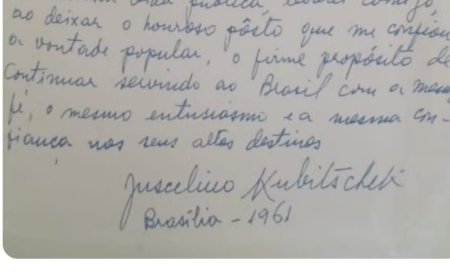 vida pública, levarei comigo,
ao deixar o honroso pôsto que me confiou
a vontade popular, o firme propósito de
continuar servindo ao Brasil com a mesma
fé, o mesmo entusiasmo e a mesma con-
fiança nos seus altos destinos
Juscelino Kubitschek
Brasília - 1961